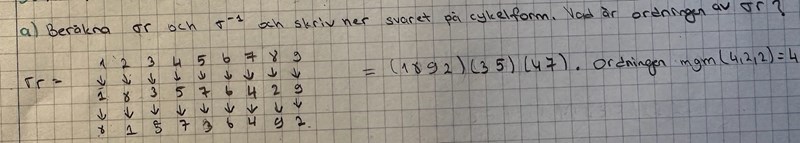 a) Beräkna στ och σ⁻¹ och skriv ner svaret på cykelform. Vad är ordningen av στ?
1 2 3 4 5 6 7 8 9
στ = ↓ ↓ ↓ ↓ ↓ ↓ ↓ ↓ ↓ = (1 8 9 2) (3 5) (4 7). Ordningen mgm (4,2,2) = 4
1 8 3 5 7 6 4 2 9
↓ ↓ ↓ ↓ ↓ ↓ ↓ ↓ ↓
8 1 5 7 3 6 4 9 2.